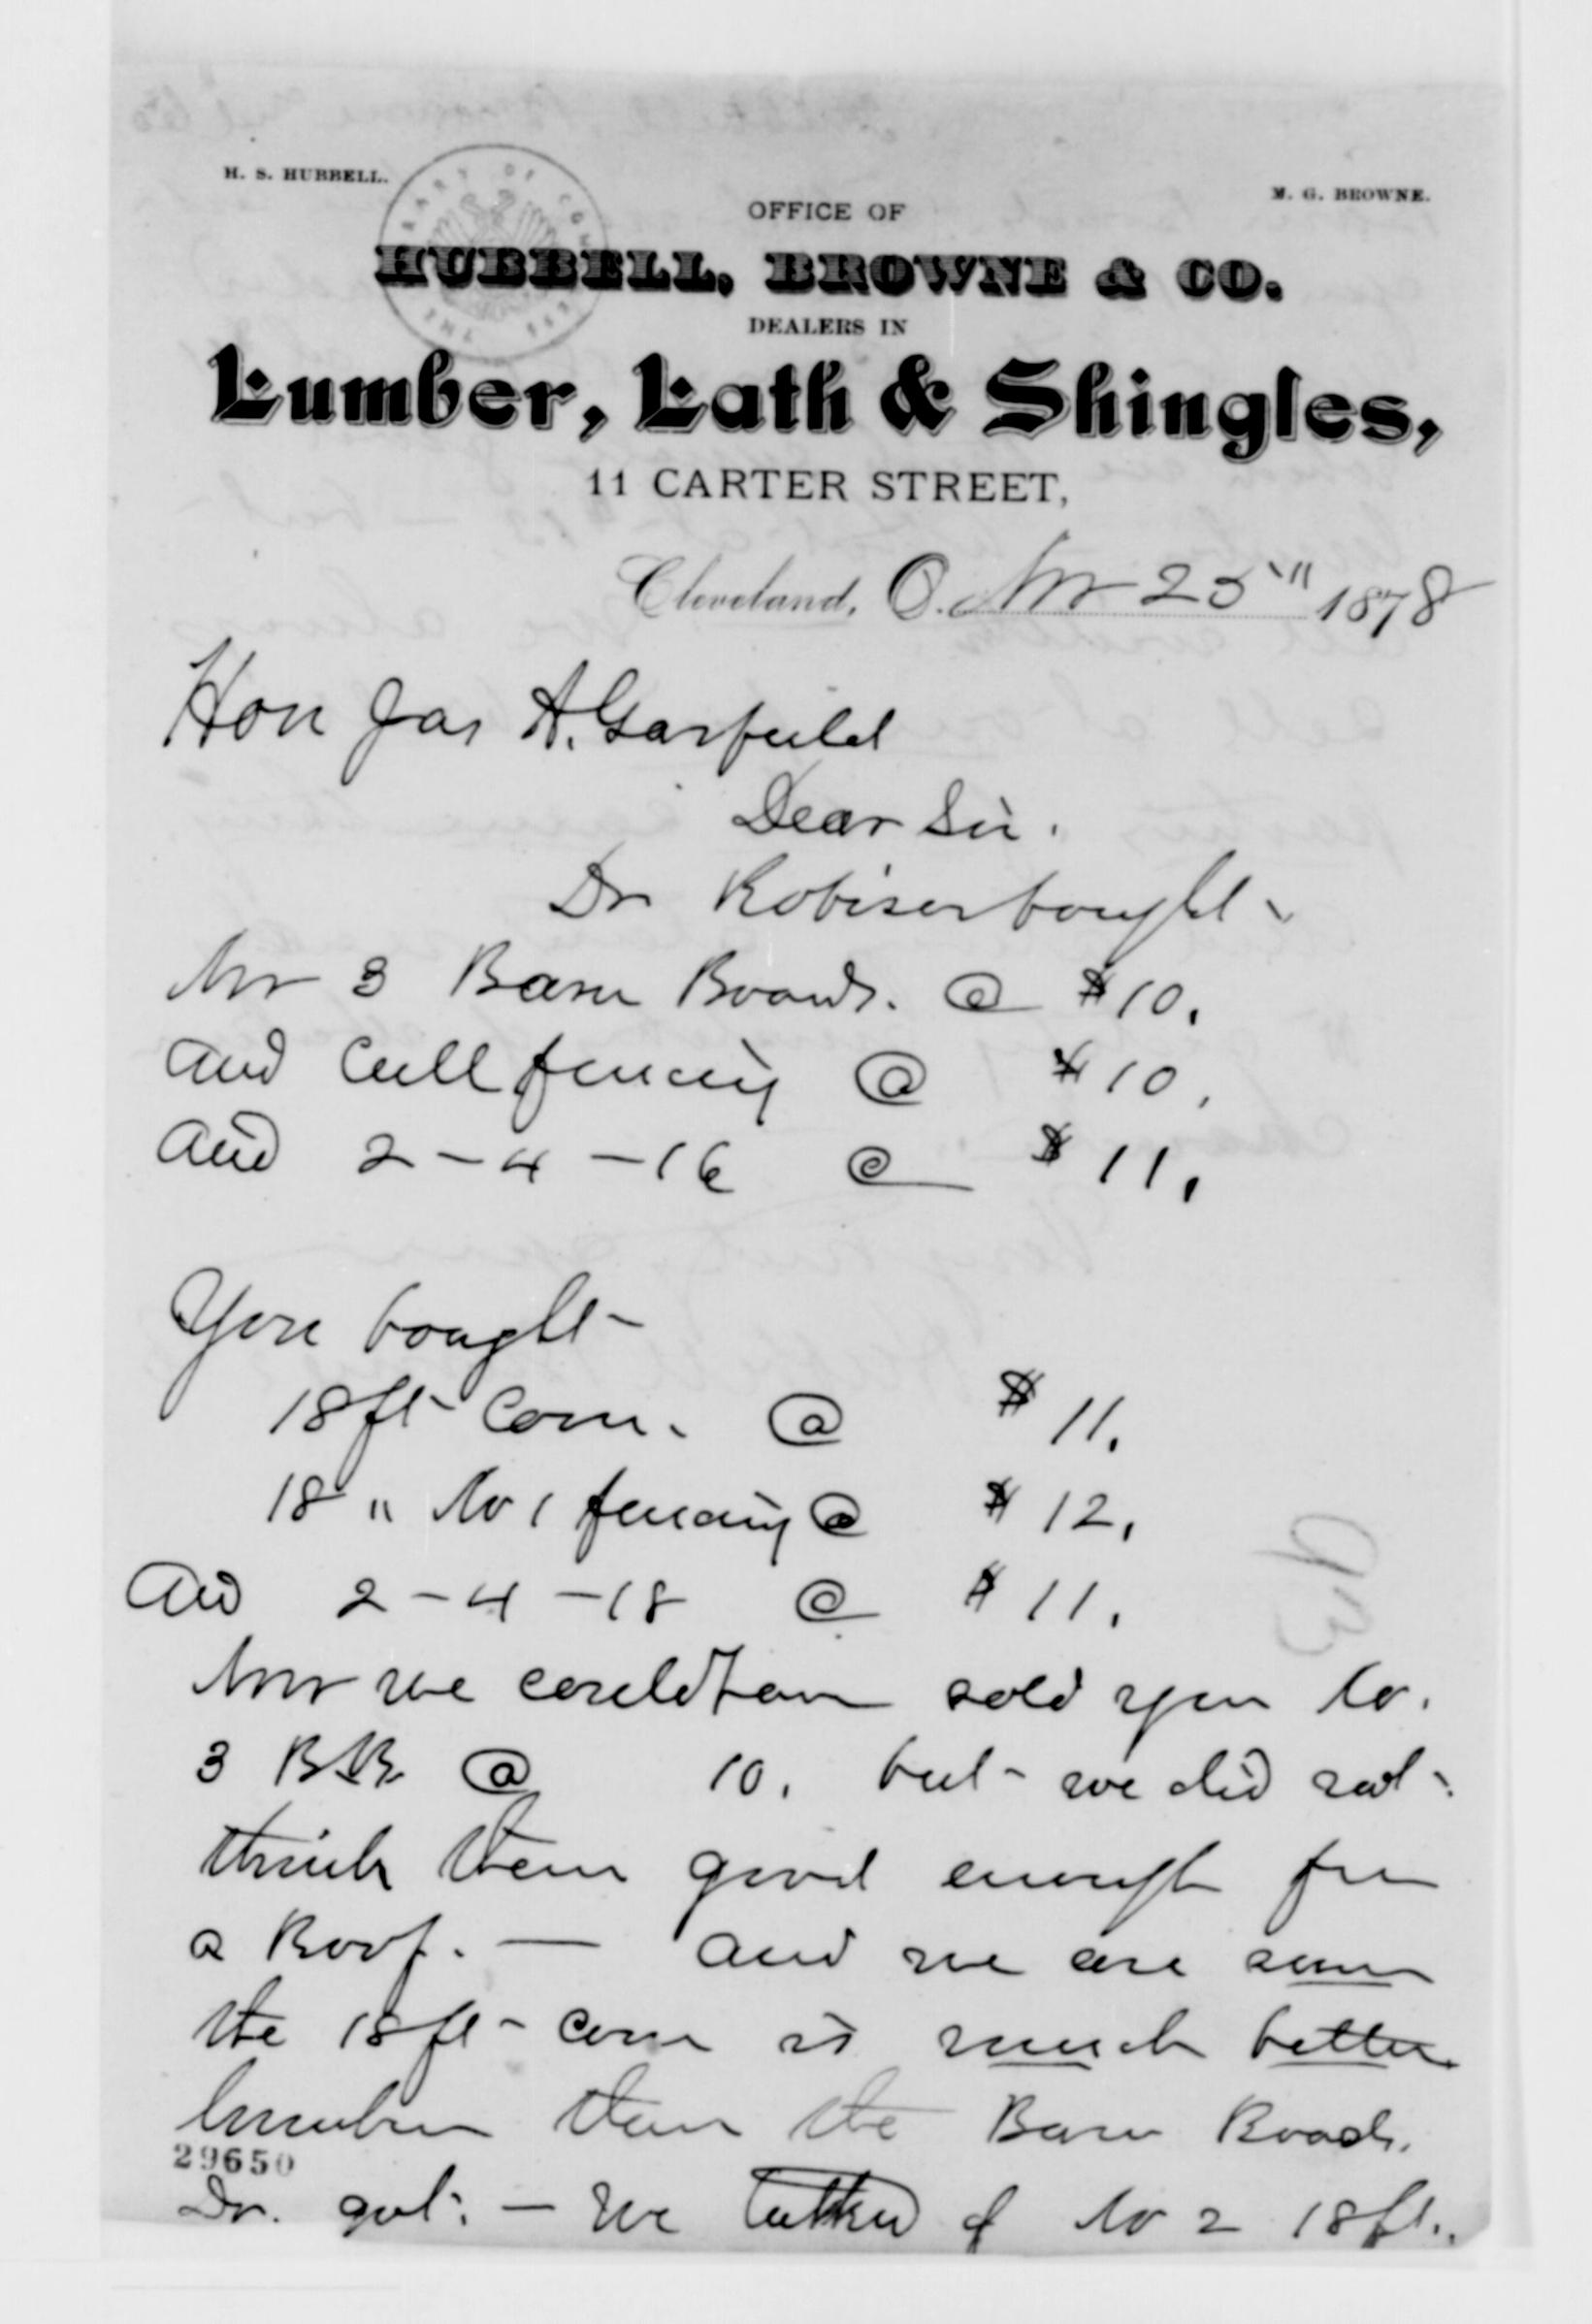 H. S. HUBBELL.
M. G. BROWNE.
OFFICE OF
HUBBELL, BROWNE & CO.
DEALERS IN
Lumber, Lath & Shingles,
11 CARTER STREET,
Cleveland, O. Nov 25" 1878
Hon Jas A. Garfield
Dear Sir.
Dr Robison bought
No 3 Barn Boards. @ $10.
and Cull fencing @ $10.
and 2-4-16 @ $11.
You bought
18 ft Com. @ $11.
18 " No 1 fencing @ $12.
and 2-4-18 @ $11.
Now we could have sold you No.
3 BB. @ 10. but we did not
think them good enough for
a Roof. — and we are sure
the 18 ft com is much better
lumber than the Barn Boards.
29650
Dr. got. — We talked of No 2 18 ft.